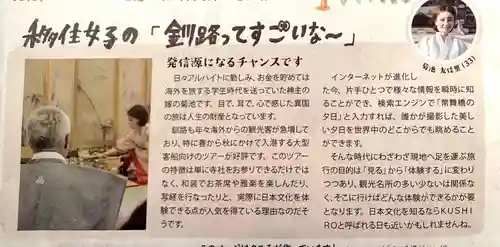 移住女子の「釧路ってすごいな〜」
菊池 友佳里(33)
発信源になるチャンスです
日々アルバイトに勤しみ、お金を貯めては
海外を旅する学生時代を送っていた神主の
嫁の菊池です。目で、耳で、心で感じた異国
の旅は人生の財産となっています。
釧路も年々海外からの観光客が急増して
おり、特に春から秋にかけて入港する大型
客船向けのツアーが好評です。このツアー
の特徴は単に寺社をお参りできるだけでは
なく、和装でお茶席や雅楽を楽しんだり、
写経を行なったりと、実際に日本文化を体
験できる点が人気を得ている理由なのだそ
うです。
インターネットが進化し
た今、片手ひとつで様々な情報を瞬時に知
ることができ、検索エンジンで「常舞橋の
夕日」と入力すれば、誰かが撮影した美し
い夕日を世界中のどこからでも眺めること
ができます。
そんな時代にわざわざ現地へ足を運ぶ旅
行の目的は「見る」から「体験する」に変わり
つつあり、観光名所の多い少ないは関係な
く、そこに行けばどんな体験ができるかが要
となります。日本文化を知るならKUSHI
ROと呼ばれる日も近いかもしれませんね。